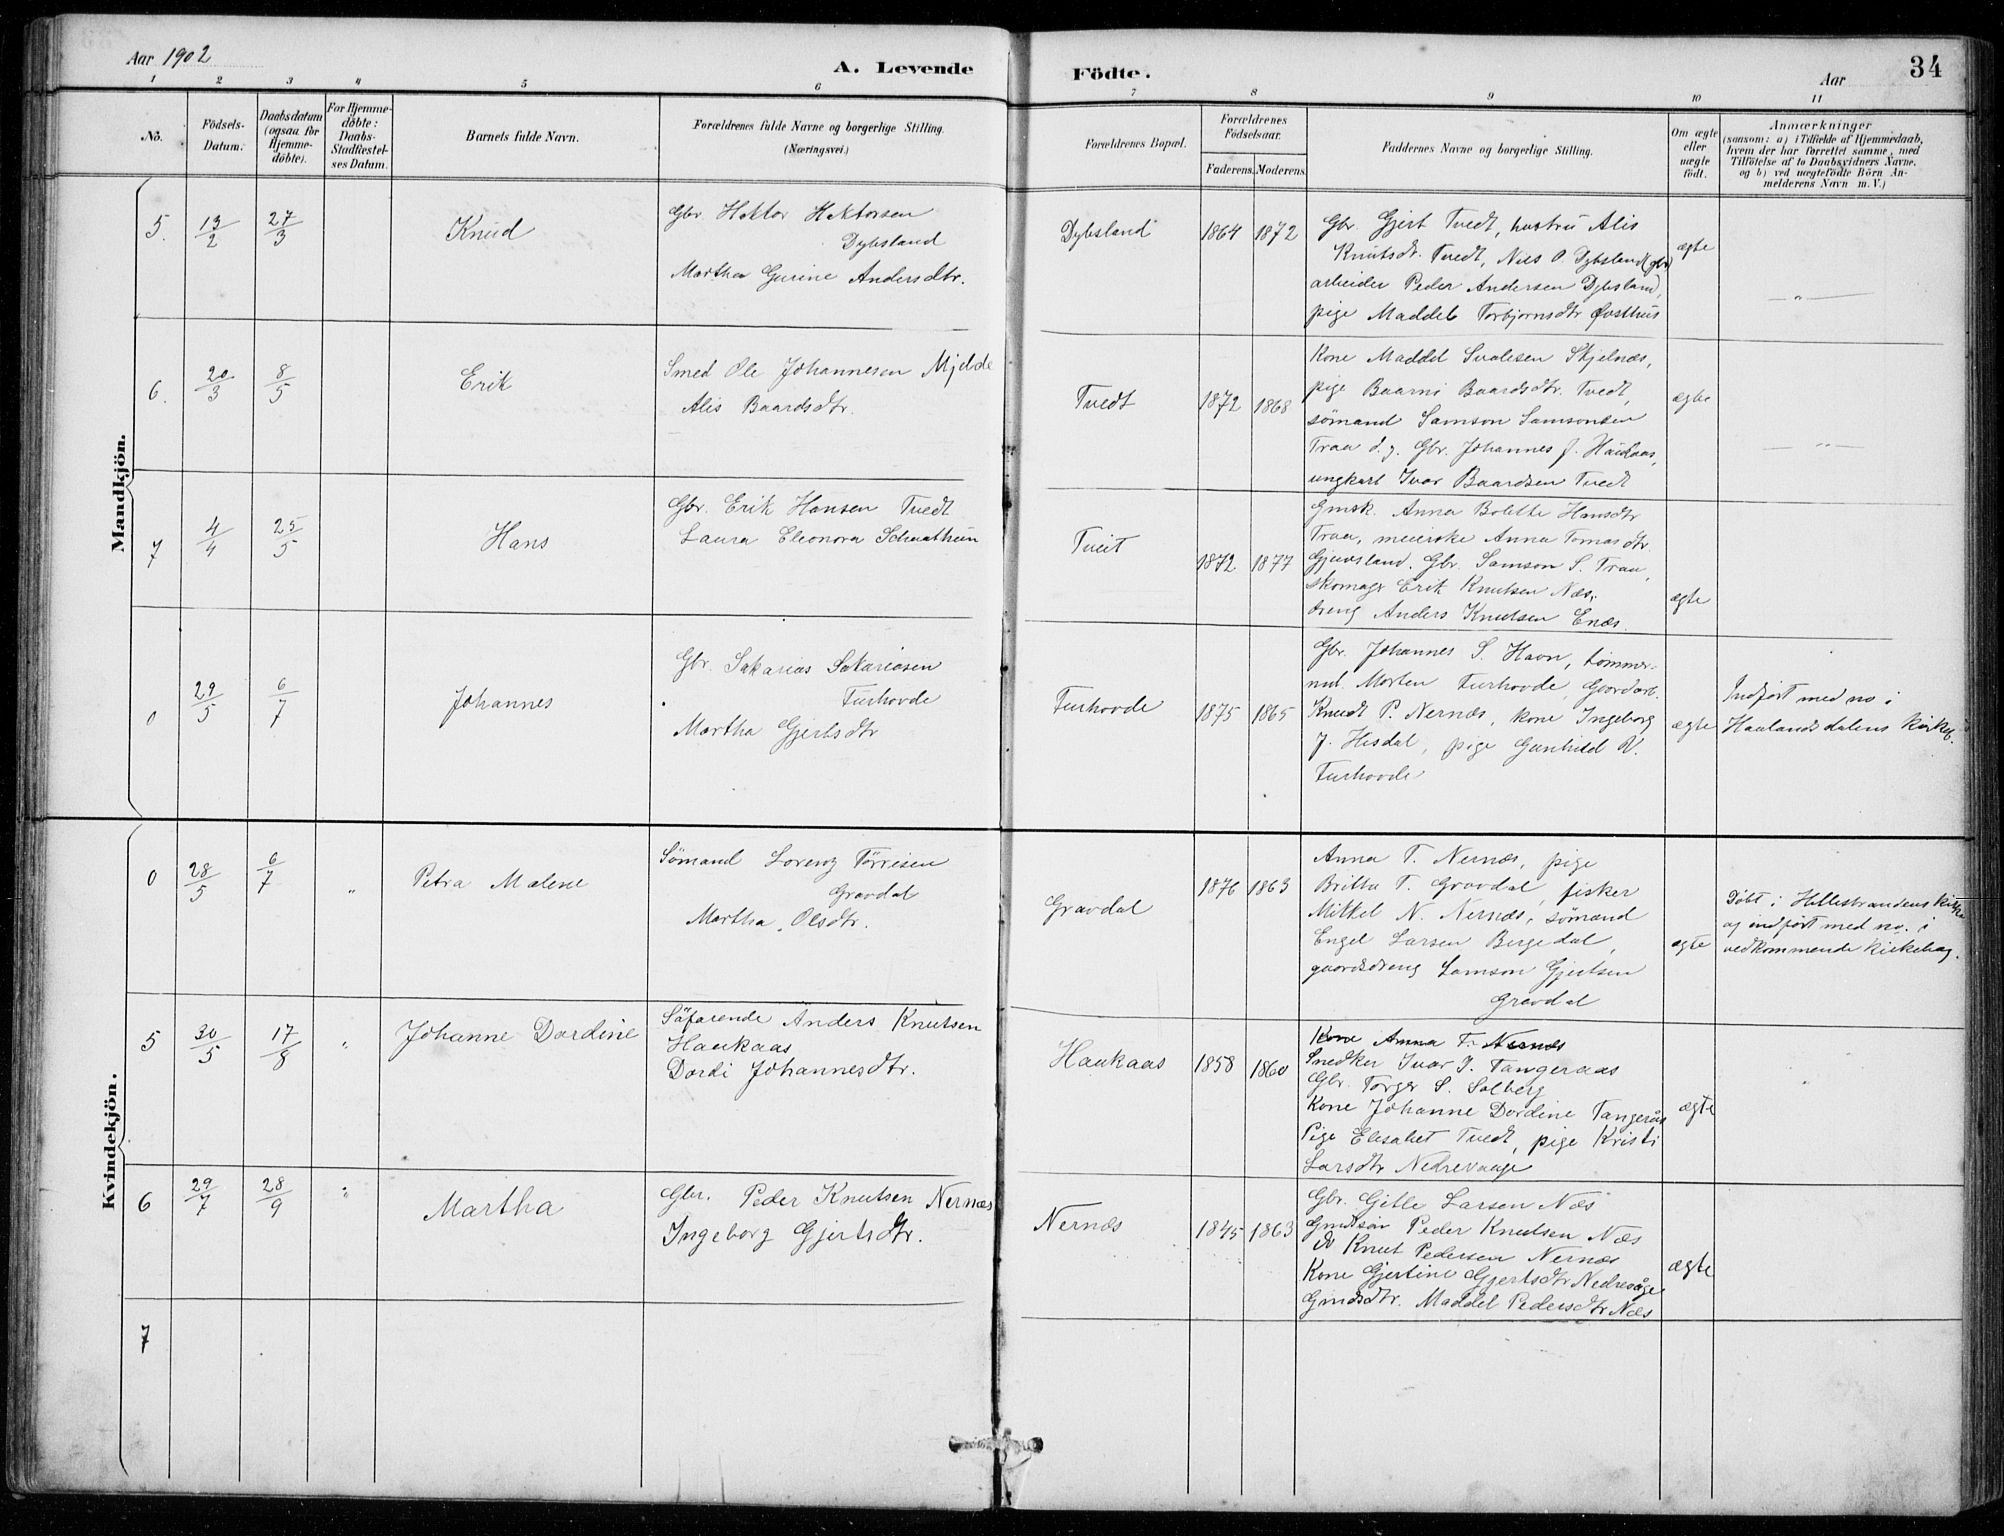 Aar 1902
A. Levende
Födte.
Aar
34
1 2 3 4 5 6 7 8 9 10 11
No.
Födsels-
Datum.
Daabsdatum
(ogsaa for
Hjemme-
döbte).
For Hjemme-
döbte:
Daabs-
Stadfæstel-
ses Datum.
Barnets fulde Navn.
Forældrenes fulde Navne og borgerlige Stilling.
(Næringsvei.)
Forældrenes Bopæl.
Forældrenes
Födselsaar.
Faderens. Moderens.
Faddernes Navne og borgerlige Stilling.
Om ægte
eller
uægte
födt.
Anmærkninger
(saasom: a) i Tilfælde af Hjemmedaab,
hvem der har forrettet samme, med
Tilföielse af to Daabsvidners Navne,
og b) ved uægtefödte Börn An-
melderens Navn m. V.)
Mandkjön.
5. 13/2 27/3
Knud
Gbr. Hektor Hektorsen
Dybsland
Martha Gurine Andersdtr.
Dybsland
1864 1872
Gbr. Gjert Tvedt, hustru Alis
Knutsdtr. Tvedt, Nils O. Dybsland (gbr)
arbeider Peder Andersen Dybsland,
pige Maddel Torbjornsdtr Østhus
ægte
— " —
6. 20/3 8/5
Erik
Smed Ole Johannesen Mjelde
Alis Baardsdtr.
Tvedt
1872 1868
Kone Maddel Svalesen Skjelnæs,
pige Baarni Baardsdtr. Tvedt,
sømand Samson Samsonsen
Traa d.y. Gbr. Johannes J. Haukaas,
ungkarl Ivar Baardsen Tvedt
ægte
— " —
7 4/4 25/5
Hans
Gbr. Erik Hansen Tvedt
Laura Eleonora Schaathun
Tveit
1872 1877
Gmsk. Anna Bolette Hansdtr
Traa, meierske Anna Tomasdtr.
Gjuvsland. Gbr. Samson S. Traa,
skomagr Erik Knutsen Næs,
dreng Anders Knudsen Enæs.
ægte
0 29/5 6/7
Johannes
Gbr. Sakarias Sakariasen
Furhovde
Martha Gjertsdtr
Furhovde
1875 1865
Gbr. Johannes S. Havn, tømmer-
md. Morten Furhovde, Gaardarb.
Knudt P. Nernæs, kone Ingeborg
J. Hisdal, pige Gunhild R.
Furhovde
ægte
Indført med no i
Haalandsdalens kirkeb.
Kvindekjön.
0 28/5 6/7 "
Petra Malene
Sømand Lorenz Tørrisen
Gravdal
Martha Olsdtr.
Gravdal
1876 1863
Anna T. Nernæs, pige
Britta T. Gravdal, fisker
Mikkel N. Nernæs, sømand
Engel Larsen Bergedal,
gaardsdreng Samson Gjertsen
Gravdal
ægte
Døbt i Hillestrandens kirke
og indført med no. i
vedkommende kirkebog.
5 30/5 17/8 "
Johanne Dordine
Søfarende Anders Knutsen
Haukaas
Dordi Johannesdtr.
Haukaas
1858 1860
Kone Anna T. Nernæs
Snedker Ivar J. Tangeraas
Gbr. Torger S. Solberg
Kone Johanne Dordine Tangerås
Pige Elisabet Tvedt, pige Kristi
Larsdtr Nedrevaage
ægte
6 29/7 28/9 "
Martha
Gbr. Peder Knutsen Nernæs
Ingeborg Gjertsdtr.
Nernæs
1845 1863
Gbr. Gitle Larsen Næs
Gmdsøn Peder Knudsen Næs
do Knut Pedersen Nernæs
Kone Gjertine Gjertsdtr Nedrevåge
Gmdsdtr. Maddel Pedersdtr Næs
ægte
7